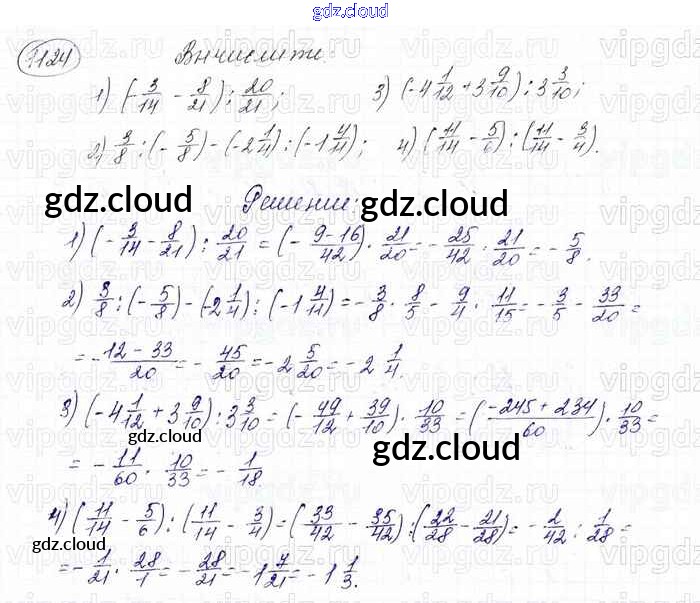 gdz.cloud
1124 Вычислить:
1) (-3/14 - 8/21) : 20/21; 3) (-4 1/12 + 3 9/10) : 3 3/10;
2) 3/8 : (-5/8) - (-2 1/4) : (-1 4/11); 4) (11/14 - 5/6) : (11/14 - 3/4).
gdz.cloud Решение: gdz.cloud
1) (-3/14 - 8/21) : 20/21 = (-9-16/42) · 21/20 = -25/42 · 21/20 = -5/8.
2) 3/8 : (-5/8) - (-2 1/4) : (-1 4/11) = -3/8 · 8/5 - 9/4 · 11/15 = -3/5 - 33/20 =
= -12-33/20 = -45/20 = -2 5/20 = -2 1/4.
3) (-4 1/12 + 3 9/10) : 3 3/10 = (-49/12 + 39/10) · 10/33 = (-245+234/60) · 10/33 =
gdz.cloud gdz.cloud
= -11/60 · 10/33 = -1/18
4) (11/14 - 5/6) : (11/14 - 3/4) = (33/42 - 35/42) : (22/28 - 21/28) = -2/42 : 1/28 =
gdz.cloud
= -1/21 · 28/1 = -28/21 = -1 7/21 = -1 1/3.